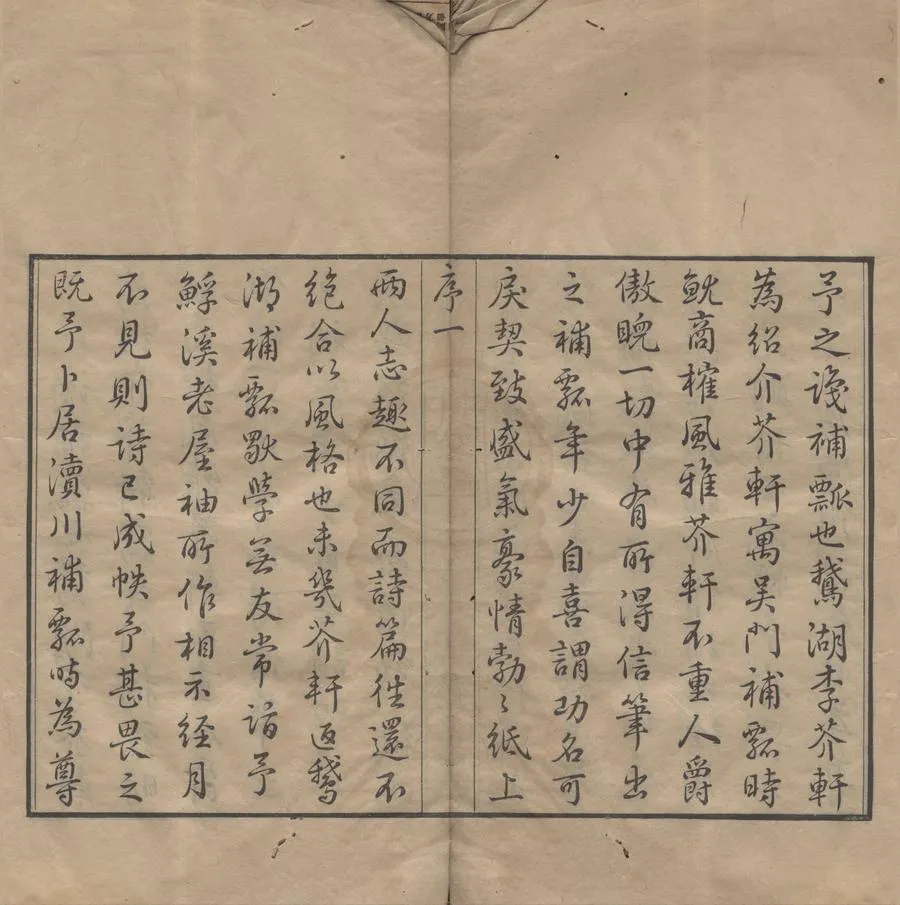 予之識補瓢也鵝湖李芥軒
為紹介芥軒寓吳門補瓢時
就商榷風雅芥軒不重人爵
傲睨一切中有所得信筆出
之補瓢年少自喜謂功名可
戾契致盛氣豪情勃〻紙上
序一
兩人志趣不同而詩篇往還不
絕合以風格也未幾芥軒返鵝
湖補瓢斆學無友常詣予
鯚溪老屋袖所作相示經月
不見則詩已成帙予甚畏之
既予卜居瀆川補瓢時為尊